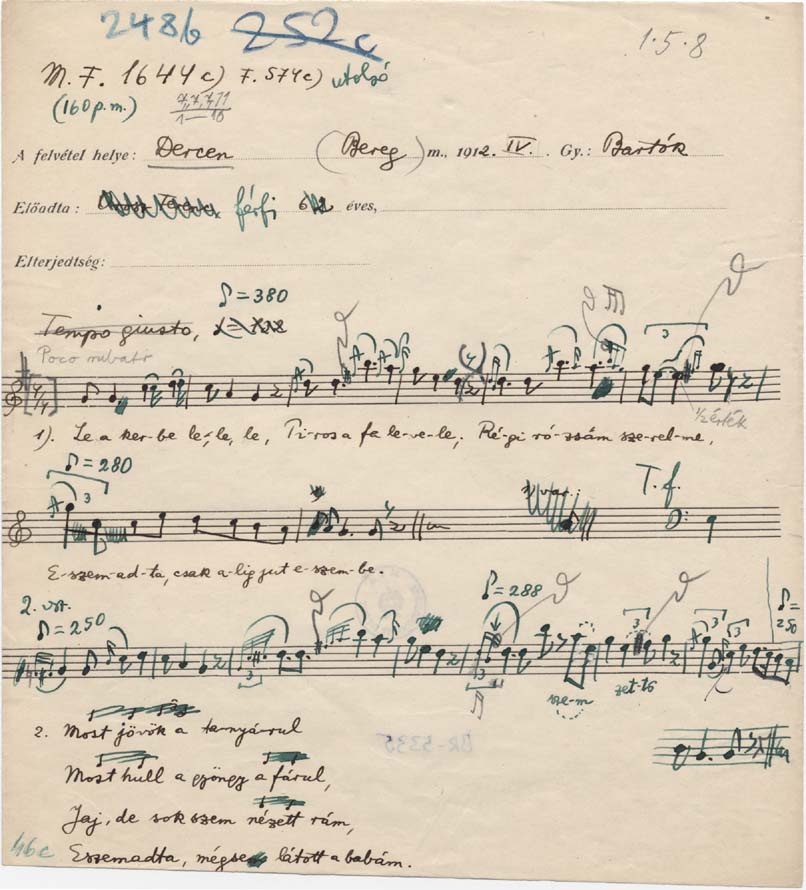 2486 252c
1.5.8
M. F. 1644c) F. 574c) utolsó
(160 p.m.) 7,7,7,11
1—16
A felvétel helye: Dercen (Bereg) m., 1912. IV. Gy.: Bartók
Előadta: férfi 62 éves,
Elterjedtség:
♪=380
Tempo giusto,
Poco rubato
1). Le a ker-be le-le, le, Pi-ros a fa le-ve-le, Ré-gi ró-zsám sze-rel-me,
½ érték
♪=280
var.: T. f.
E-szem-ad-ta, csak a-lig jut e-szem-be.
2. vsz.
♪=250 ♪=288 ♪=250
sze-m zet-tö
2. Most jövök a tanyárul
Most hull a gyöngy a fárul,
Jaj, de sok szem nézett rám,
Eszemadta, mégse látott a babám.
BR-5335
46c